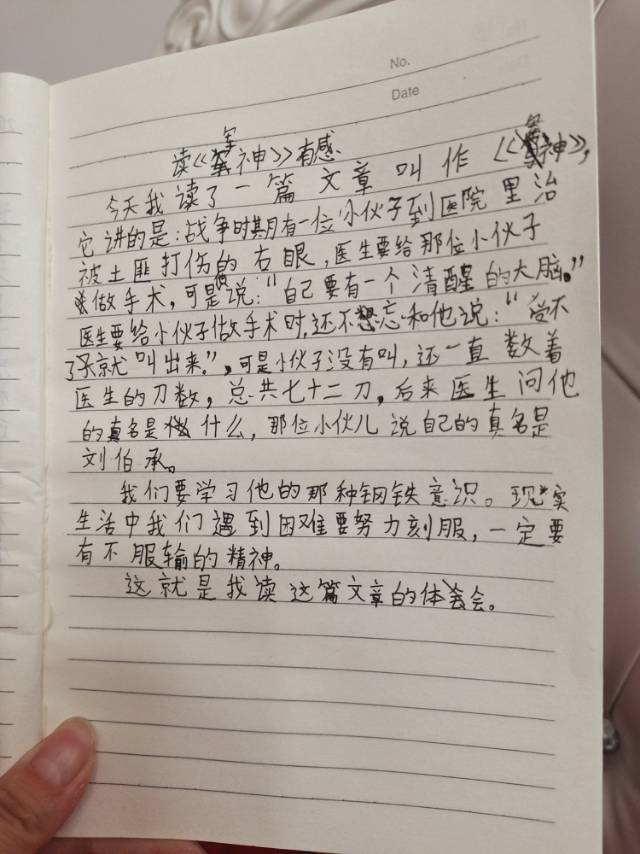 No.
Date
读《军神》有感
今天我读了一篇文章叫作《军神》,
它讲的是:战争时期有一位小伙子到医院里治
被土匪打伤的右眼,医生要给那位小伙子
做手术,可是说:“自己要有一个清醒的大脑。”
医生要给小伙子做手术时,还不忘和他说:“受不
了就叫出来。”,可是小伙子没有叫,还一直数着
医生的刀数,总共七十二刀,后来医生问他
的真名是什么,那位小伙儿说自己的真名是
刘伯承。
我们要学习他的那种钢铁意识。现实
生活中我们遇到困难要努力刻服,一定要
有不服输的精神。
这就是我读这篇文章的体会。